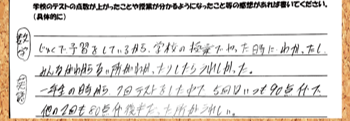 学校のテストの点数が上がったことや授業が分かるようになったこと等の感想があれば書いてください。
(具体的に)
数学 じっくり予習をしているから、学校の授業でやった時にわかったし
みんながわからない所がわかったりしたらうれしかった。
英語 一年生の時から、7回テストをした中で5回といって90点台で
他の2回も80点台後半だった所がうれしい。